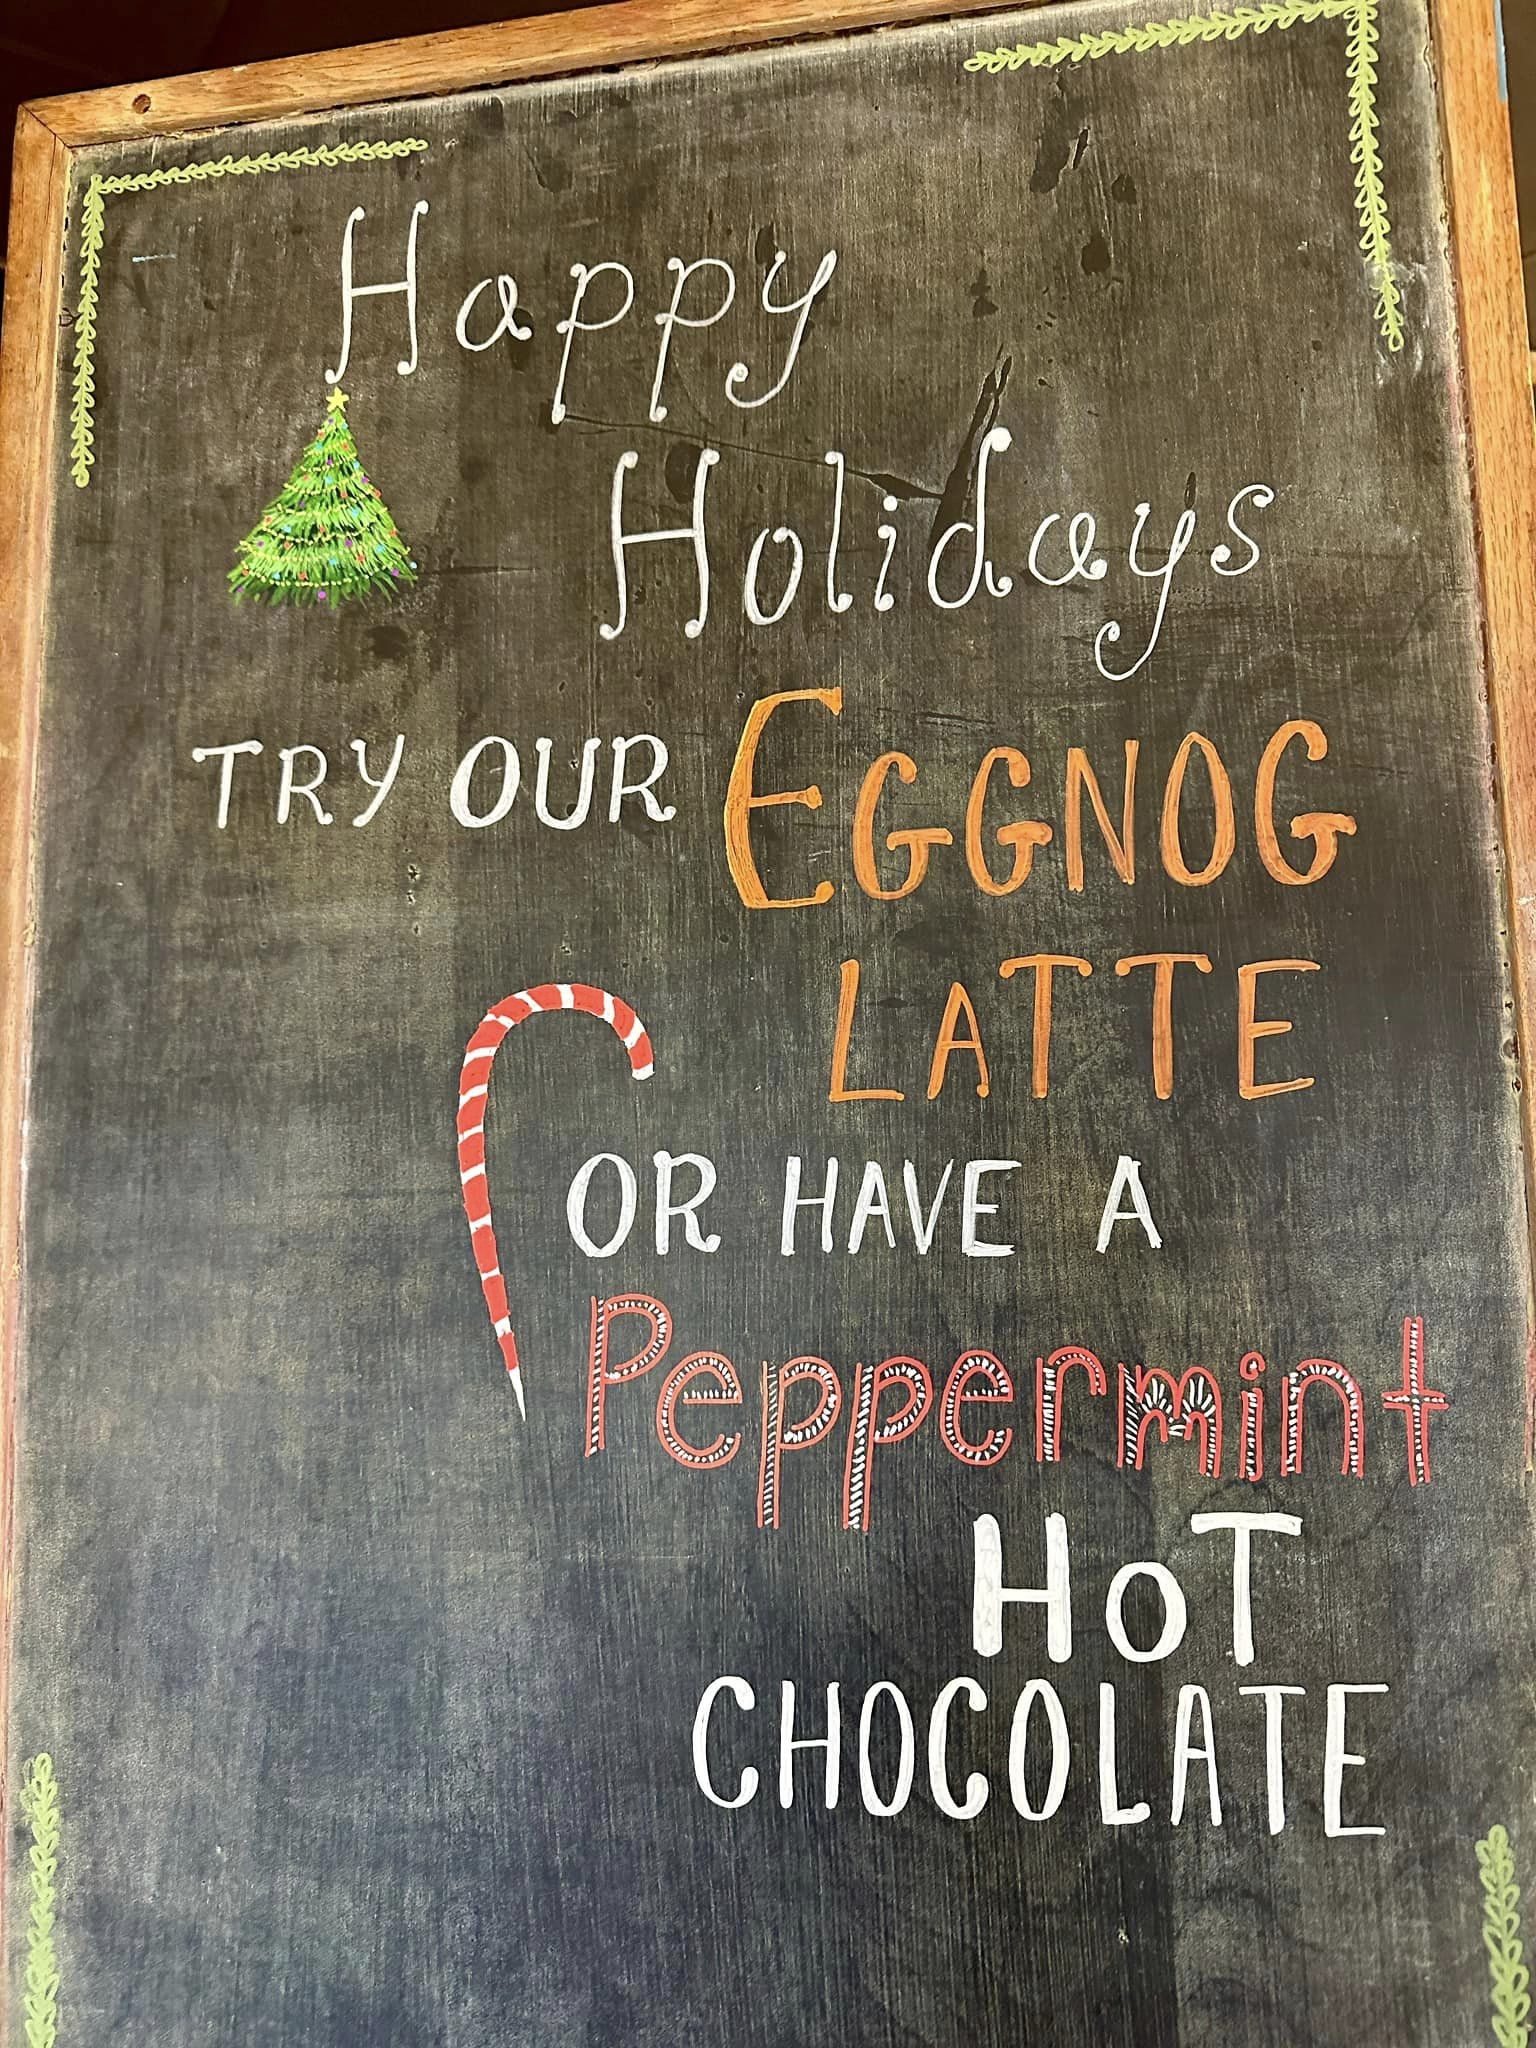 Happy
Holidays
TRY OUR EGGNOG
LATTE
OR HAVE A
Peppermint
HOT
CHOCOLATE